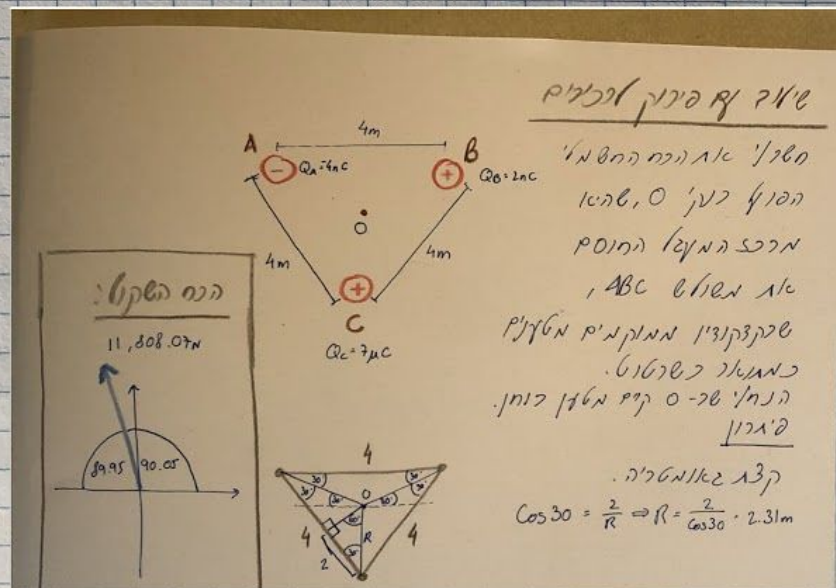 שיעור עם פירוק לרכיבים
חשב/י את הכח החשמלי
הפועל בנק' O, שהיא
מרכז המעגל החוסם
את משולש ABC,
שבקדקודיו ממוקמים מטענים
כמתואר בשרטוט.
הנח/י שב-O קיים מטען בוחן.
פיתרון
קצת גאומטריה.
Cos30 = 2/R ⇒ R = 2/Cos30 · 2.31m
4m
A
-
QA=-4nC
B
+
QB=2nC
O
4m
4m
+
C
QC=7μC
הכח השקול:
11,808.07N
89.95
90.05
4
30
30
30
30
O
30
30
60
60
R
4
4
2
30